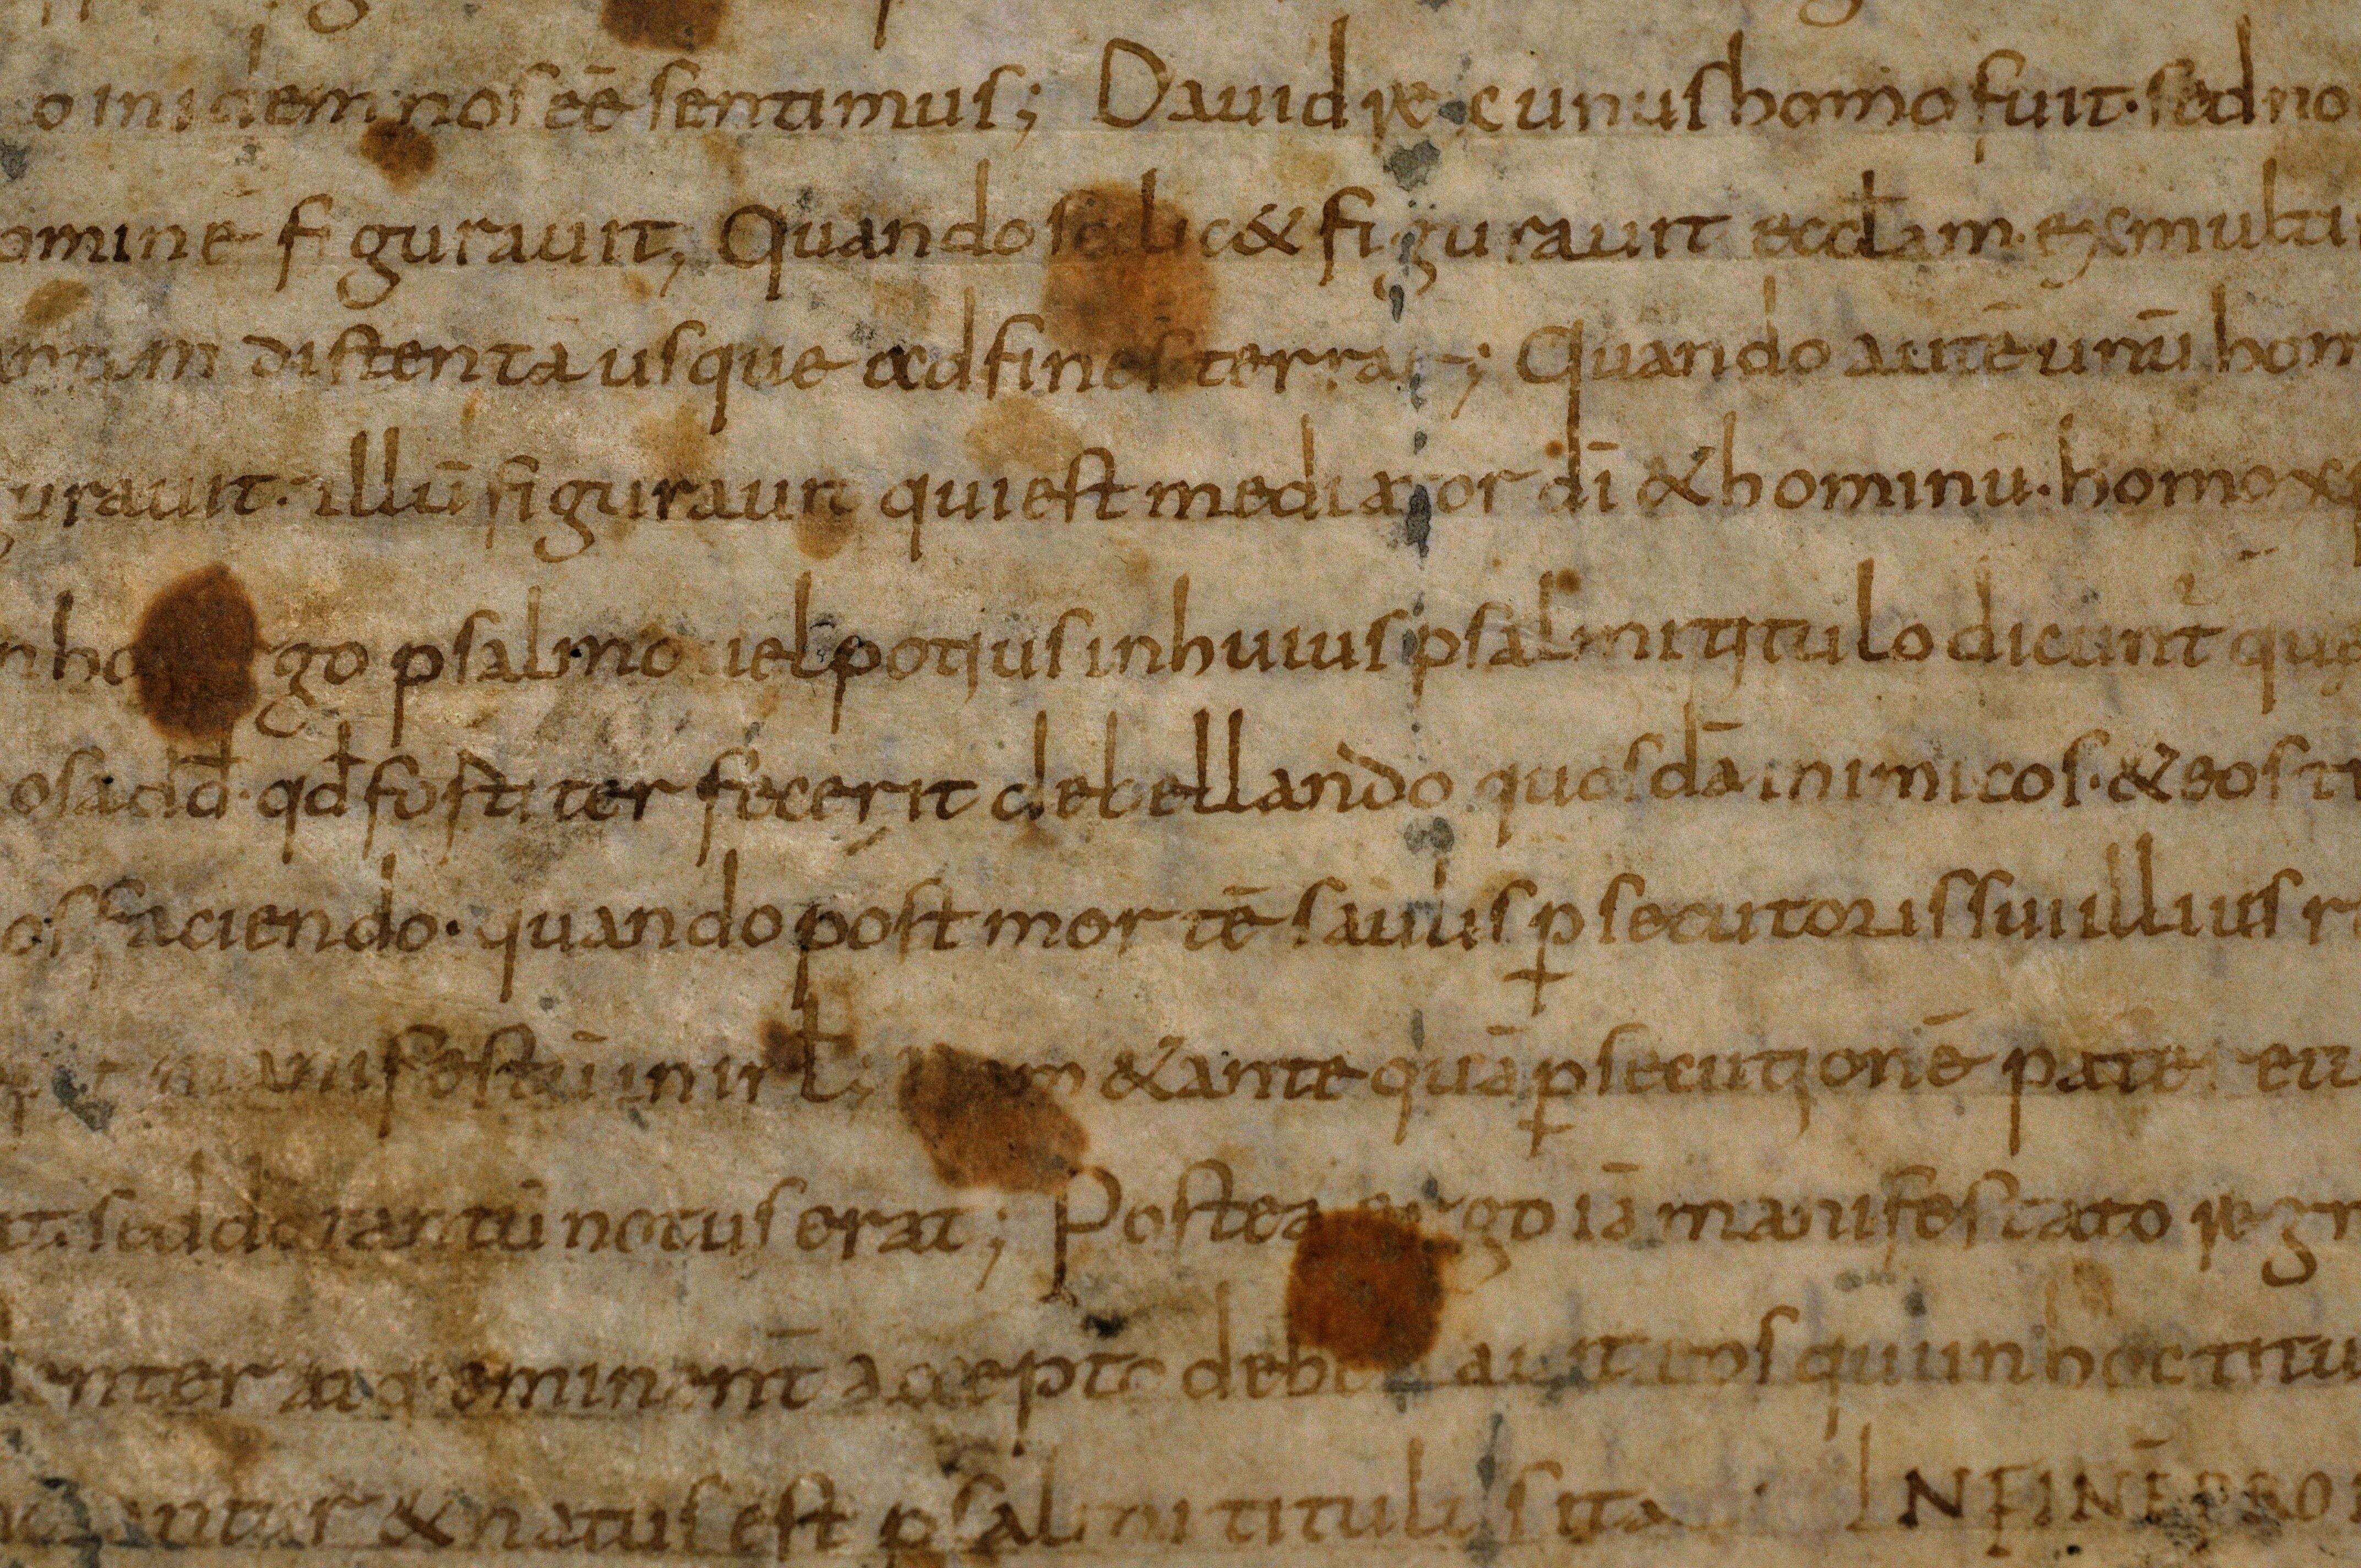 o in idem nos eē sentimus; Dauid rex unus homo fuit· sed no
omine figurauit; Quando scilic& figurauit eccl̄am· ex multi
distenta usque ad fines terrae; Quando autē unū hom
urauit· illū figurauit qui est mediator dī & hominū· homo xp
go psalmo uel potius in huius psalmi titulo dicunt̄ que
dd̄· qd̄ fortiter fecerit debellando quosdā inimicos· & eos tr
os faciendo· quando post mortē saulis p̱secutoris sui illius
manifestū in irl̄; & ante quā p̱secutionē patē eū
t· sed do tantū notus erat; Postea ergo iā manifestato rege
eminent̄ accepto debellauit eos qui in hoc titu
antur & natus est psalmi tituli s ita INFINĒ PRO